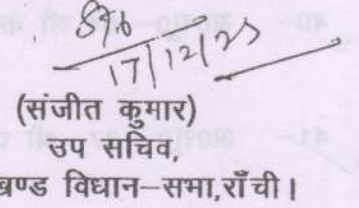 ह0
17/12/25
(संजीत कुमार)
उप सचिव,
खण्ड विधान–सभा,राँची।